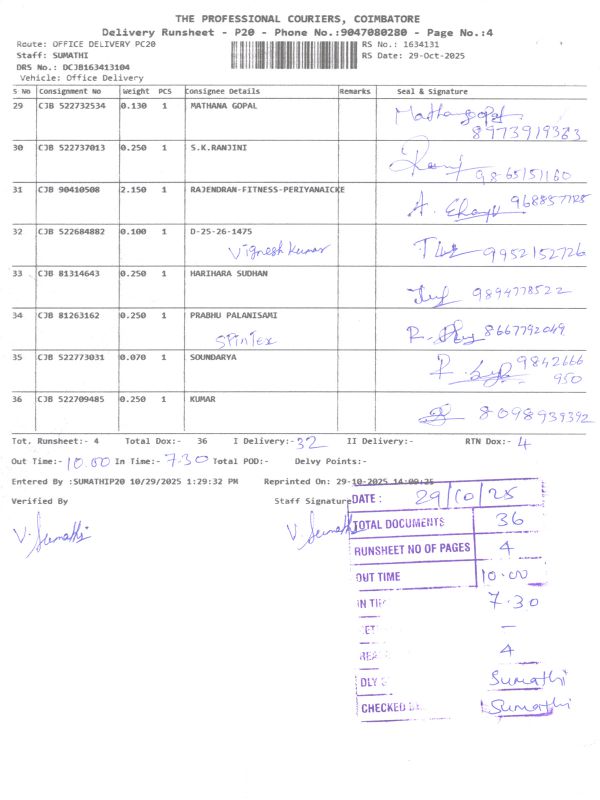 THE PROFESSIONAL COURIERS, COIMBATORE
Delivery Runsheet - P20 - Phone No.:9047080280 - Page No.:4
Route: OFFICE DELIVERY PC20 RS No.: 1634131
Staff: SUMATHI RS Date: 29-Oct-2025
DRS No.: DCJB163413104
Vehicle: Office Delivery
S No Consignment No Weight PCS Consignee Details Remarks Seal & Signature
29 CJB 522732534 0.130 1 MATHANA GOPAL Mathangopal
8973919383
30 CJB 522737013 0.250 1 S.K.RANJINI
9865151160
31 CJB 90410508 2.150 1 RAJENDRAN-FITNESS-PERIYANAICKE
32 CJB 522684882 0.100 1 D-25-26-1475
Vignesh Kumar 9952152726
33 CJB 81314643 0.250 1 HARIHARA SUDHAN
9894778522
34 CJB 81263162 0.250 1 PRABHU PALANISAMI
Spintex 8667792049
35 CJB 522773031 0.070 1 SOUNDARYA 9842666
950
36 CJB 522709485 0.250 1 KUMAR
8098939392
Tot. Runsheet:- 4 Total Dox:- 36 I Delivery:- 32 II Delivery:- RTN Dox:- 4
Out Time:- 10.00 In Time:- 7.30 Total POD:- Delvy Points:-
Entered By :SUMATHIP20 10/29/2025 1:29:32 PM Reprinted On: 29-10-2025 14:09:25
Verified By Staff Signature
V. Sumathi V. Sumathi
DATE : 29/10/25
TOTAL DOCUMENTS 36
RUNSHEET NO OF PAGES 4
OUT TIME 10.00
7.30
—
4
Sumathi
CHECKED Sumathi